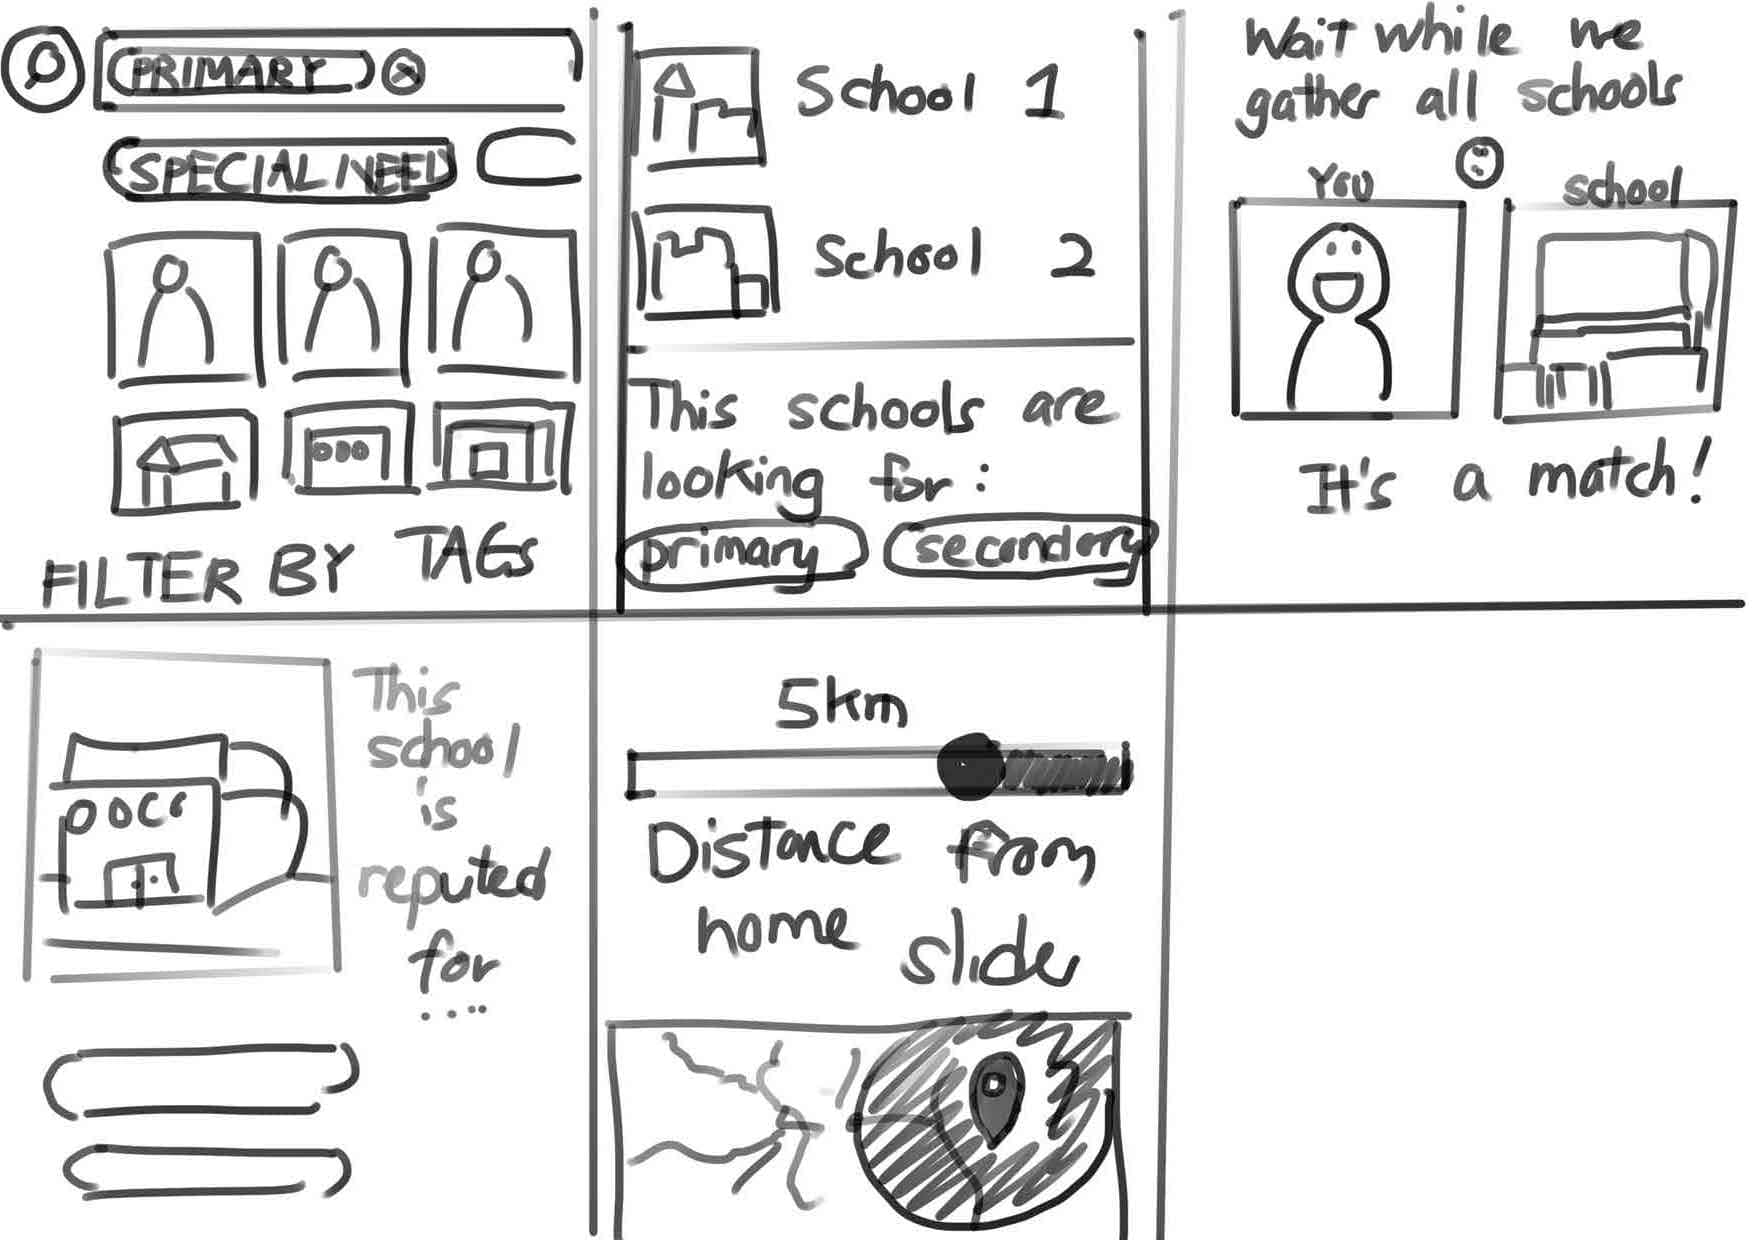 PRIMARY
SPECIAL NEED
FILTER BY TAGS
School 1
School 2
This schools are
looking for:
primary secondary
Wait while we
gather all schools
You school
It's a match!
This
school
is
reputed
for
....
5km
Distance from
home slider